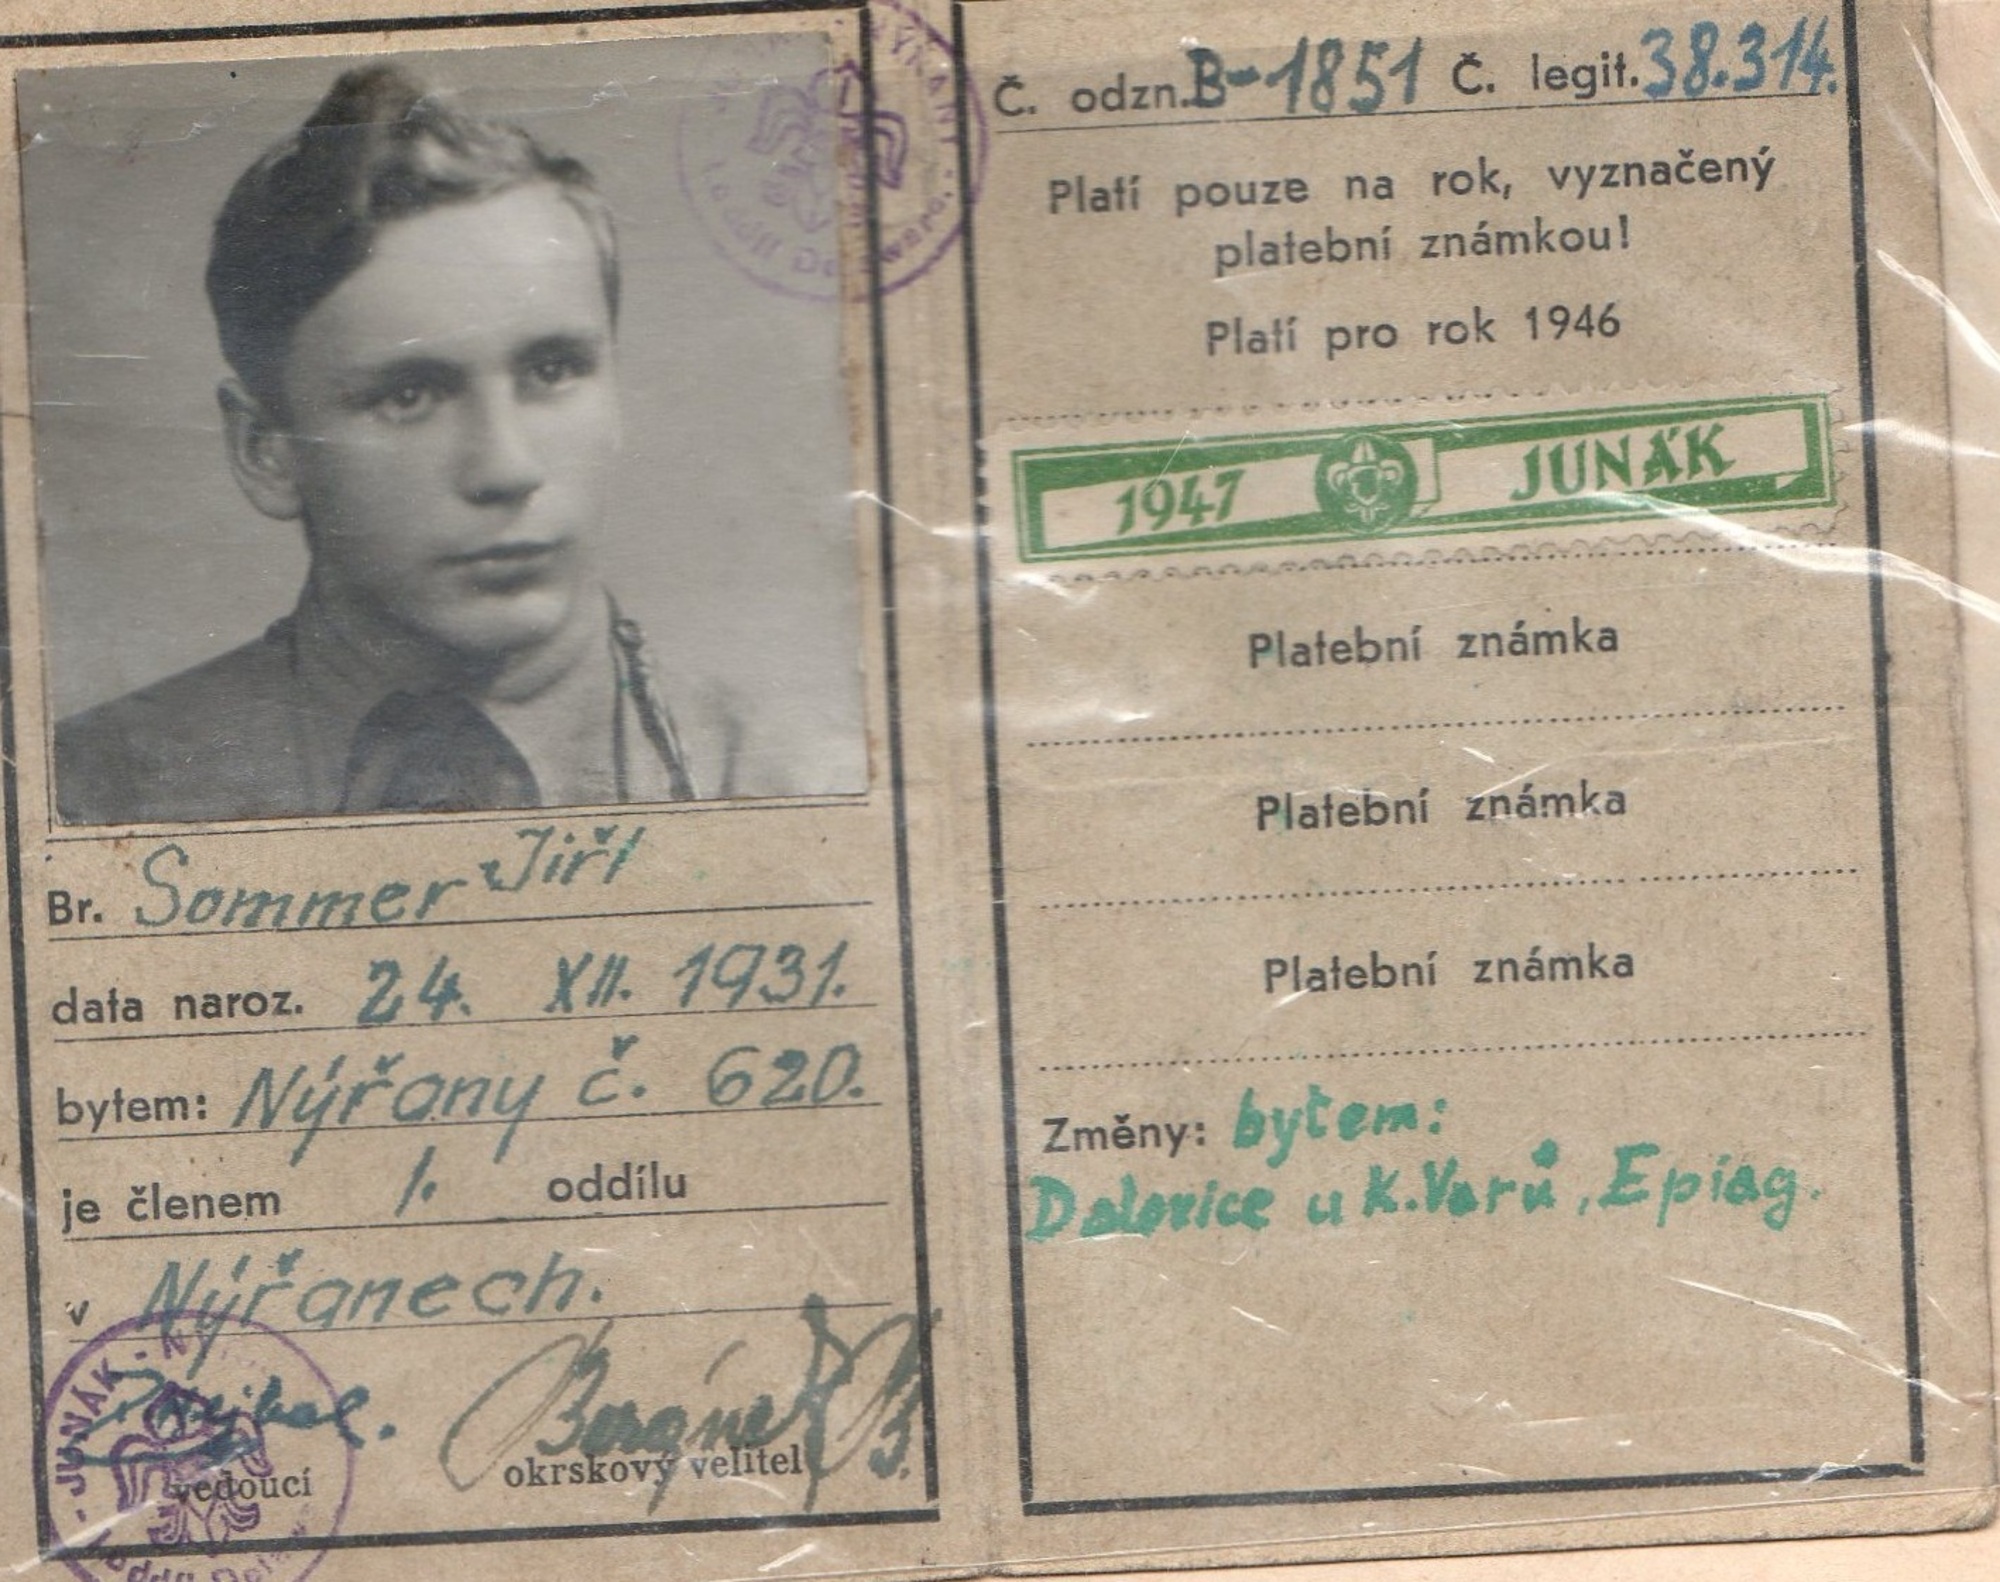 Br. Sommer Jiří
data naroz. 24. XII. 1931.
bytem: Nýřany č. 620.
je členem 1. oddílu
v Nýřanech.
vedoucí
okrskový velitel
JUNÁK - N
Č. odzn. B-1851 Č. legit. 38.314.
Platí pouze na rok, vyznačený
platební známkou!
Platí pro rok 1946
1947 JUNÁK
Platební známka
Platební známka
Platební známka
Změny: bytem:
Dalovice u K. Varů, Epiag.